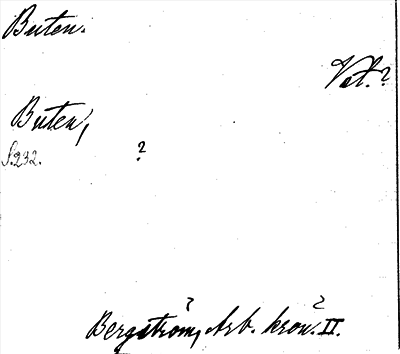 Buten.
Vet.?
Buten,
S.232.
?
? ?
Bergström, Arb. krön. II.